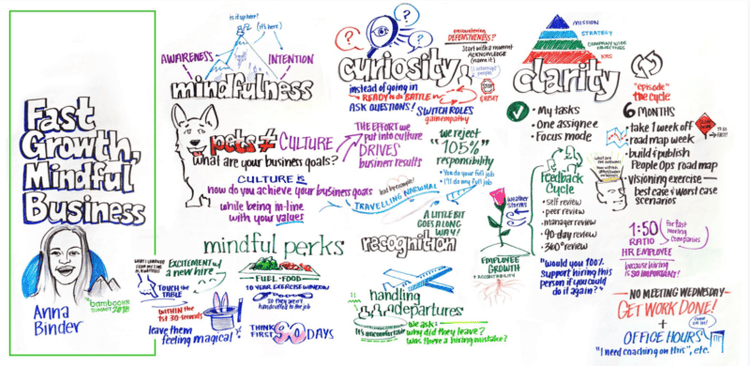 Fast
Growth,
Mindful
Business
bamboohr
SUMMIT 2018
Anna
Binder
Is it up here?
(it's here)
AWARENESS
INTENTION
mindfulness
pets ≠ CULTURE
what are your business goals?
THE EFFORT we
put into culture
DRIVES
business results
CULTURE IS
how do you achieve your business goals
while being in-line
with your values
lead by example!
TRAVELLING NARWHAL
mindful perks
EXCITEMENT of
a new hire
TOUCH the
TABLE
WITHIN the
1st 30-seconds
leave them
feeling magical!
FUEL-FOOD
10 YEAR EXERCISE WINDOW
THINK
FIRST 90 DAYS
?
?
?
curiosity
encountering
DEFENSIVENESS?
Start with a moment
ACKNOWLEDGE
(name it)
instead of going in
READY to do BATTLE
ASK QUESTIONS!
STOP
RESET
SWITCH ROLES
gain empathy
we reject
"105%"
responsibility
You do your full job
I'll do my full job
A LITTLE BIT
GOES A LONG
WAY!
recognition
handling
departures
It's uncomfortable
we ask:
why did they leave?
was there a hiring mistake?
weather
storms
EMPLOYEE
GROWTH
+ ACCOUNTABILITY
MISSION
STRATEGY
COMPANY WIDE
OBJECTIVES
KRS
clarity
• My tasks
• One assignee
• Focus mode
Feedback
Cycle
- self review
- peer review
- manager review
- 90-day review
- 360° review
"Would you 100%
support hiring this
person if you could
do it again?"
"episode"
the cycle
6 MONTHS
• take 1 week off
road map week
• build & publish
People Ops road map
• visioning exercise —
best case & worst case
scenarios
1:50
RATIO
HR EMPLOYEE
for fast
moving
companies
because hiring
is SO IMPORTANT!
NO MEETING WEDNESDAY
GET WORK DONE!
+
OFFICE HOURS
"I need coaching on this", etc.